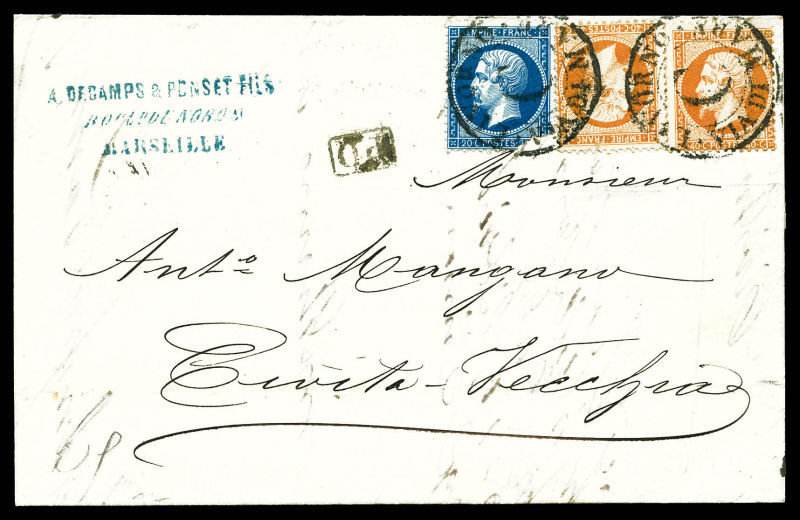 A. DECAMPS & PONSET FILS
MARSEILLE
EMPIRE FRANC
20 C. POSTES
40 C. POSTES
EMPIRE FRANC.
EMPIRE FRANC
40 C. POSTES
P.D.
Monsieur
Ant.º Mangano
Civita-Vecchia